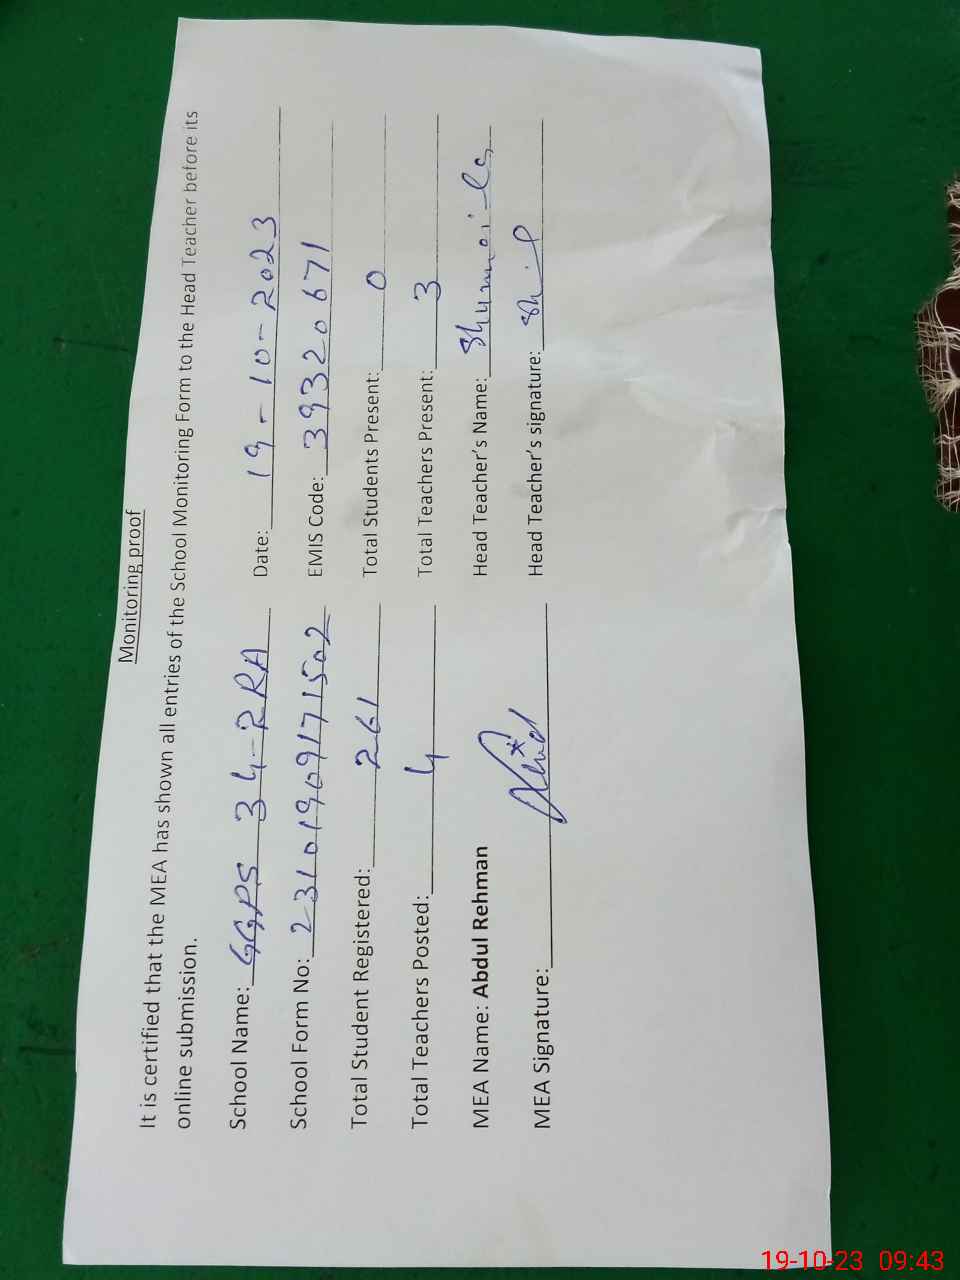 Monitoring proof
It is certified that the MEA has shown all entries of the School Monitoring Form to the Head Teacher before its
online submission.
School Name: GGPS 34-2RA Date: 19-10-2023
School Form No: 23101909171502 EMIS Code: 39320671
Total Student Registered: 261 Total Students Present: 0
Total Teachers Posted: 4 Total Teachers Present: 3
MEA Name: Abdul Rehman Head Teacher's Name: Shumaila
MEA Signature: Head Teacher's signature:
19-10-23 09:43